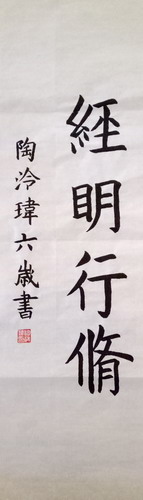 經明行脩
陶泠瑋六歲書